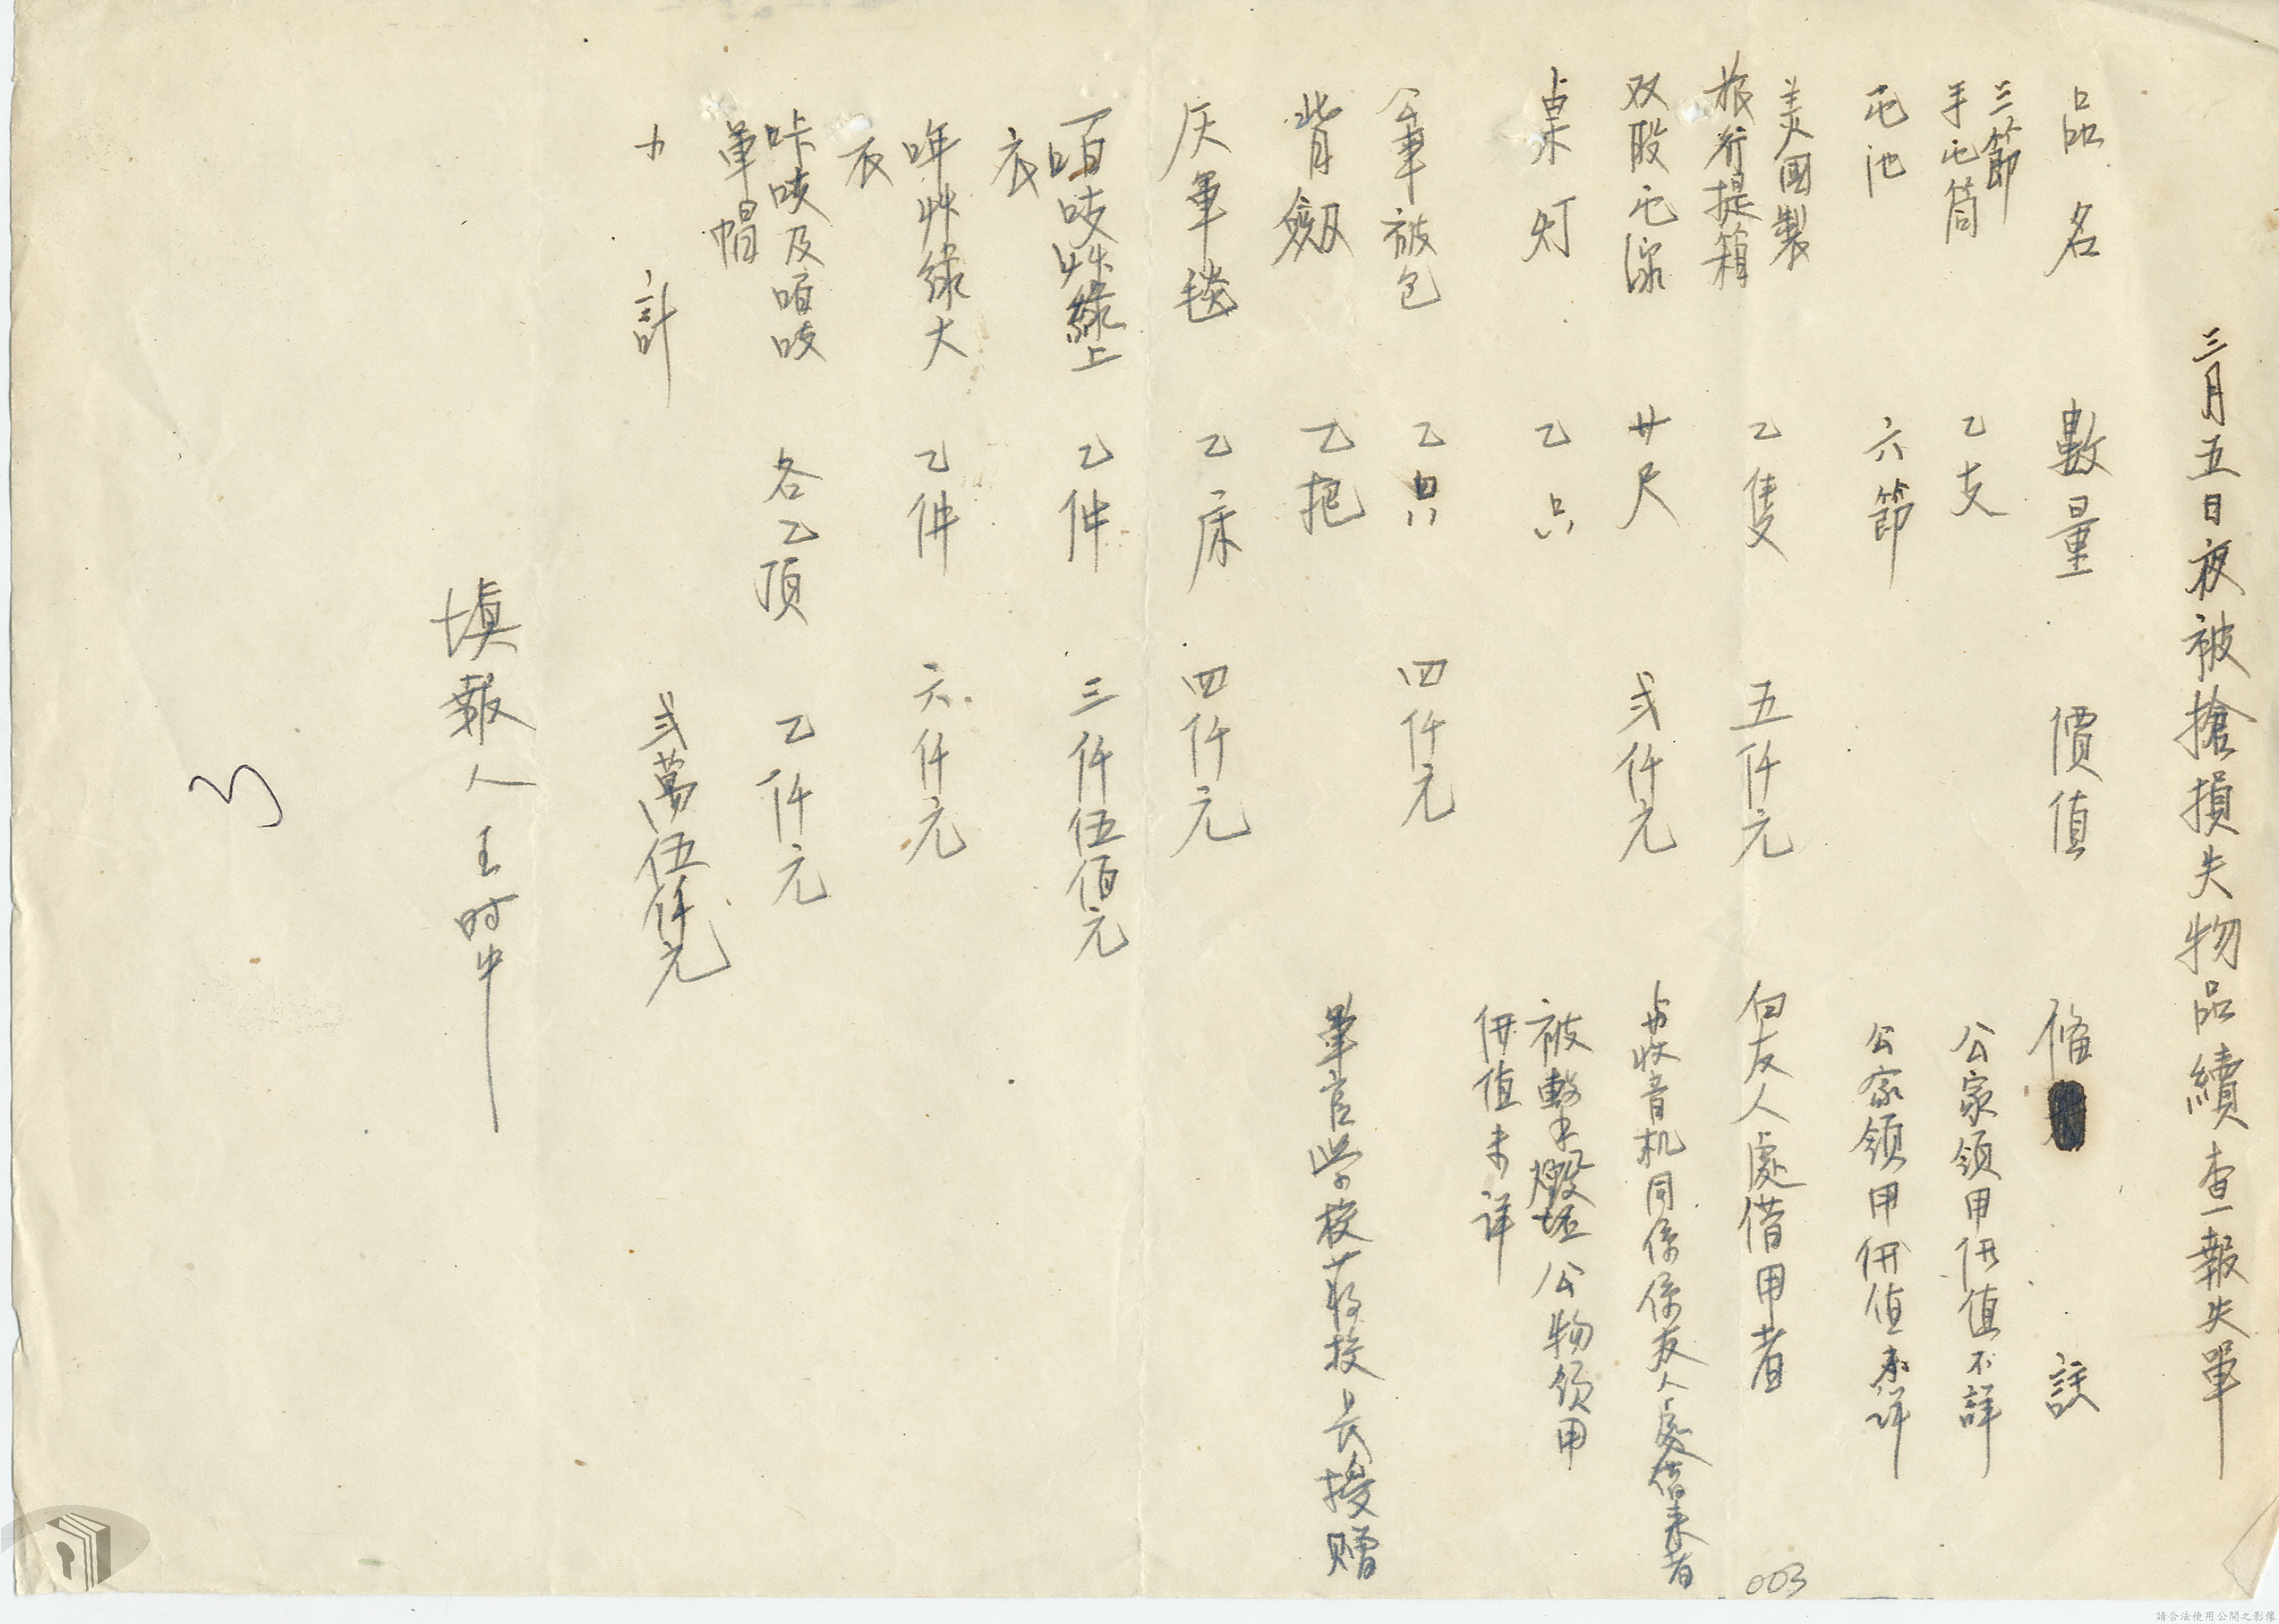 三月五日夜被搶損失物品續查報失單
品名 數量 價值 備 註
三節
手电筒 乙支 公家領用価值不詳
电池 六節 公家領用価值未詳
美國製
旅行提箱 乙隻 五仟元 向友人處借用者
双股电線 廿尺 弍仟元 與收音机同係係友人處借來者
桌灯 乙只 被擊毀壞公物領用
価值未詳
軍被包 乙只 四仟元
背劔 乙把 軍官學校蔣校長授贈
灰軍毯 乙床 四仟元
咟吱艸綠上
衣 乙件 三仟伍佰元
哖艸綠大
衣 乙件 六仟元
咔嘰及咟吱
軍帽 各乙頂 乙仟元
計 弍萬伍仟元
填報人 王时中
003
請合法使用公開之影像